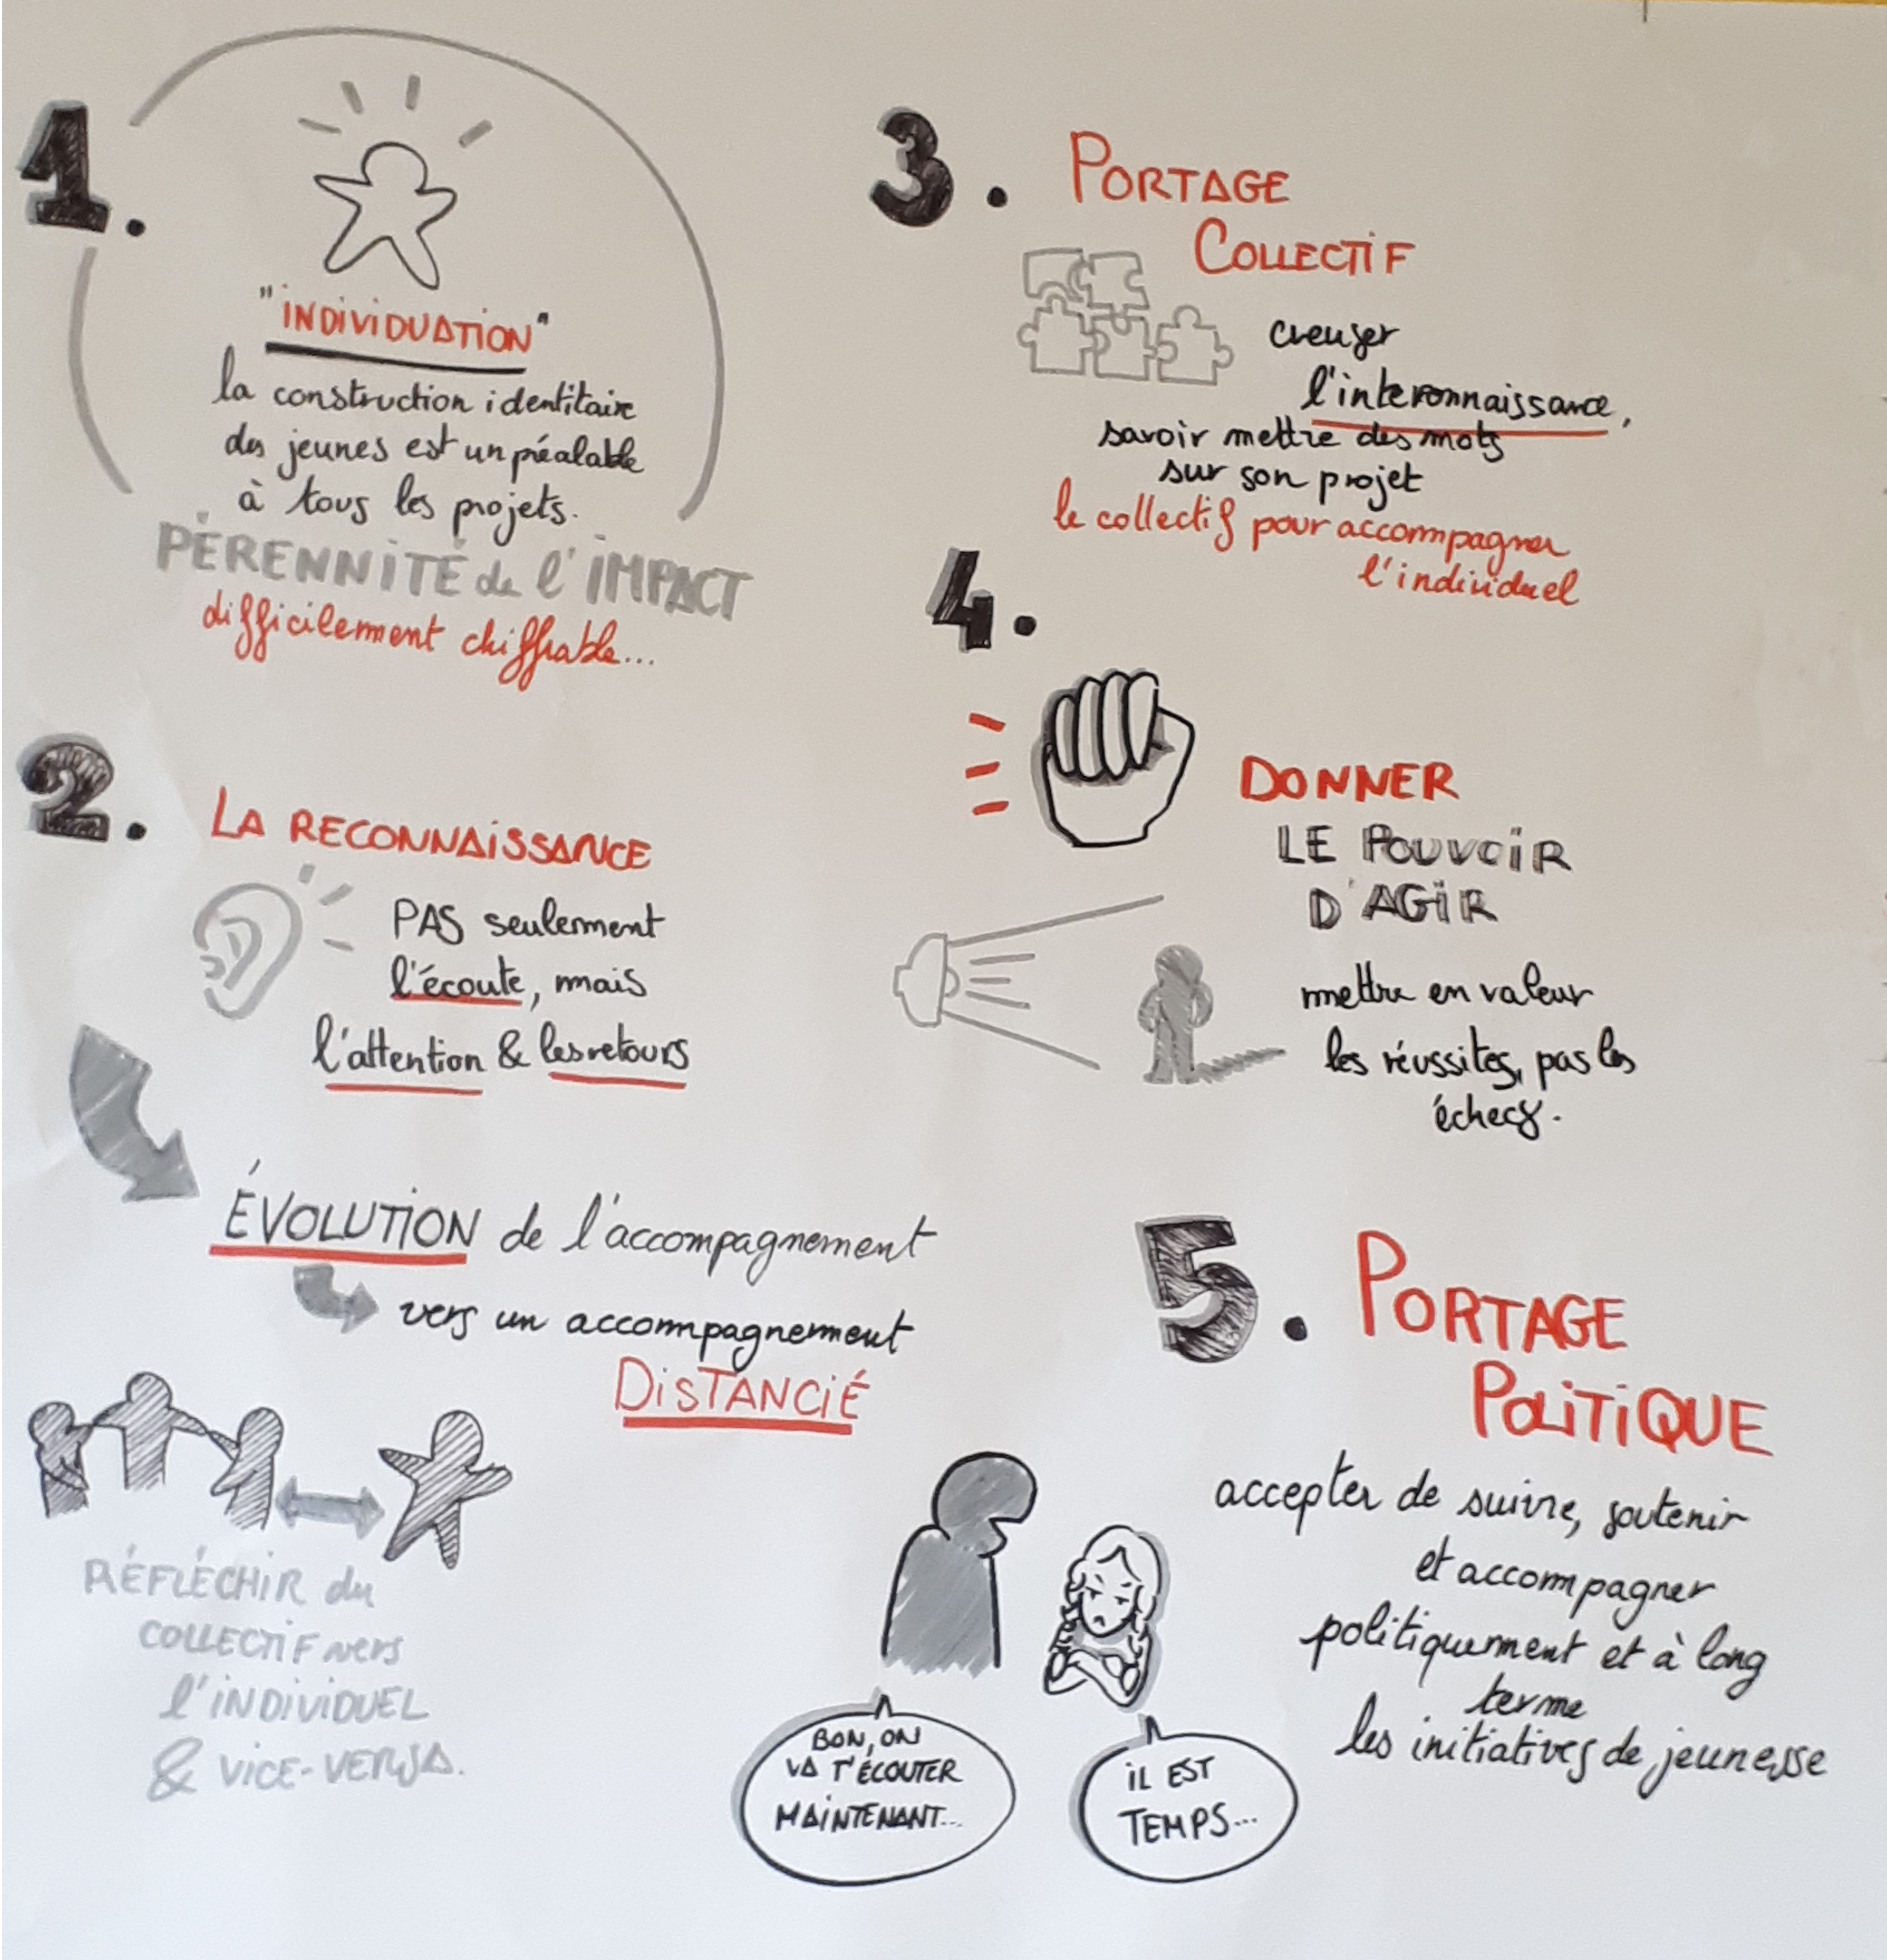 1.
"INDIVIDUATION"
la construction identitaire
des jeunes est un préalable
à tous les projets.
PÉRENNITÉ de l'IMPACT
difficilement chiffrable...
2.
LA RECONNAISSANCE
PAS seulement
l'écoute, mais
l'attention & les retours
ÉVOLUTION de l'accompagnement
vers un accompagnement
DISTANCIÉ
RÉFLÉCHIR du
COLLECTIF vers
l'INDIVIDUEL
& VICE-VERSA.
3. PORTAGE
COLLECTIF
creuser
l'interonnaissance,
savoir mettre des mots
sur son projet
le collectif pour accompagner
l'individuel
4.
DONNER
LE POUVOIR
D'AGIR
mettre en valeur
les réussites, pas les
échecs.
5. PORTAGE
POLITIQUE
accepter de suivre, soutenir
et accompagner
politiquement et à long
terme
les initiatives de jeunesse
BON, ON
VA T'ÉCOUTER
MAINTENANT...
IL EST
TEMPS...